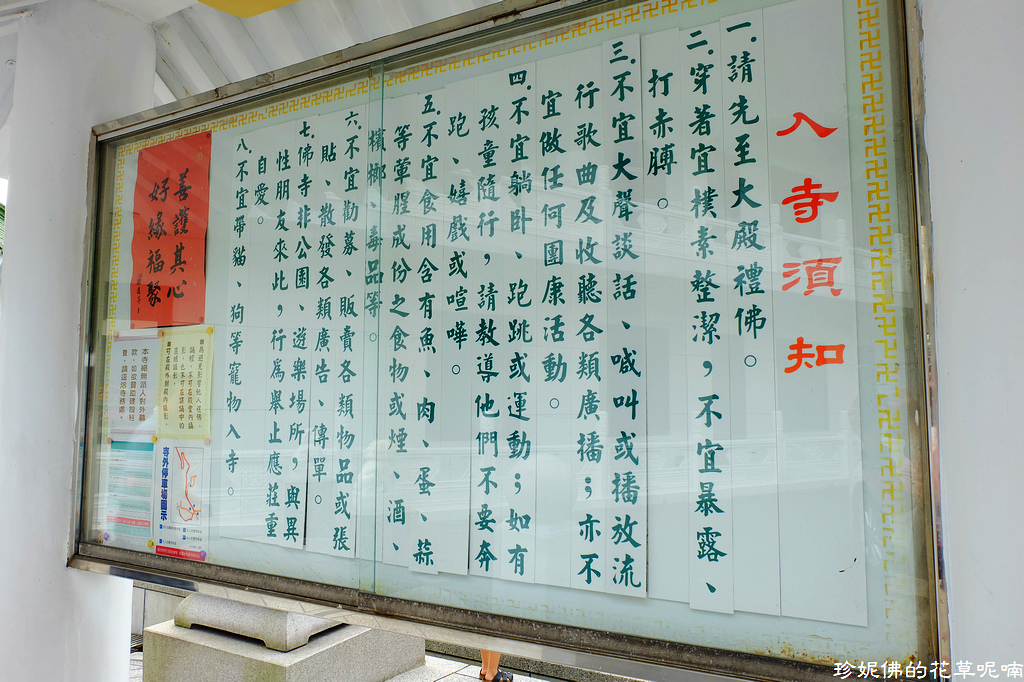 入寺須知
一.請先至大殿禮佛。
二.穿著宜樸素整潔，不宜暴露、
打赤膊。
三.不宜大聲談話、喊叫或播放流
行歌曲及收聽各類廣播；亦不
宜做任何團康活動。
四.不宜躺卧、跑跳或運動；如有
孩童隨行，請教導他們不要奔
跑、嬉戲或喧嘩。
五.不宜食用含有魚、肉、蛋、蒜
等葷腥成份之食物或煙、酒、
檳榔、毒品等。
六.不宜勸募、販賣各類物品或張
貼、散發各類廣告、傳單。
七.佛寺非公園、遊樂場所，與異
性朋友來此，行為舉止應莊重
自愛。
八.不宜帶貓、狗等寵物入寺。
善護其心
好緣福聚
本寺絕無派人對外募
款，如欲贊助建設經
費，請逕洽寺務處。
寺外停車場圖示
珍妮佛的花草呢喃